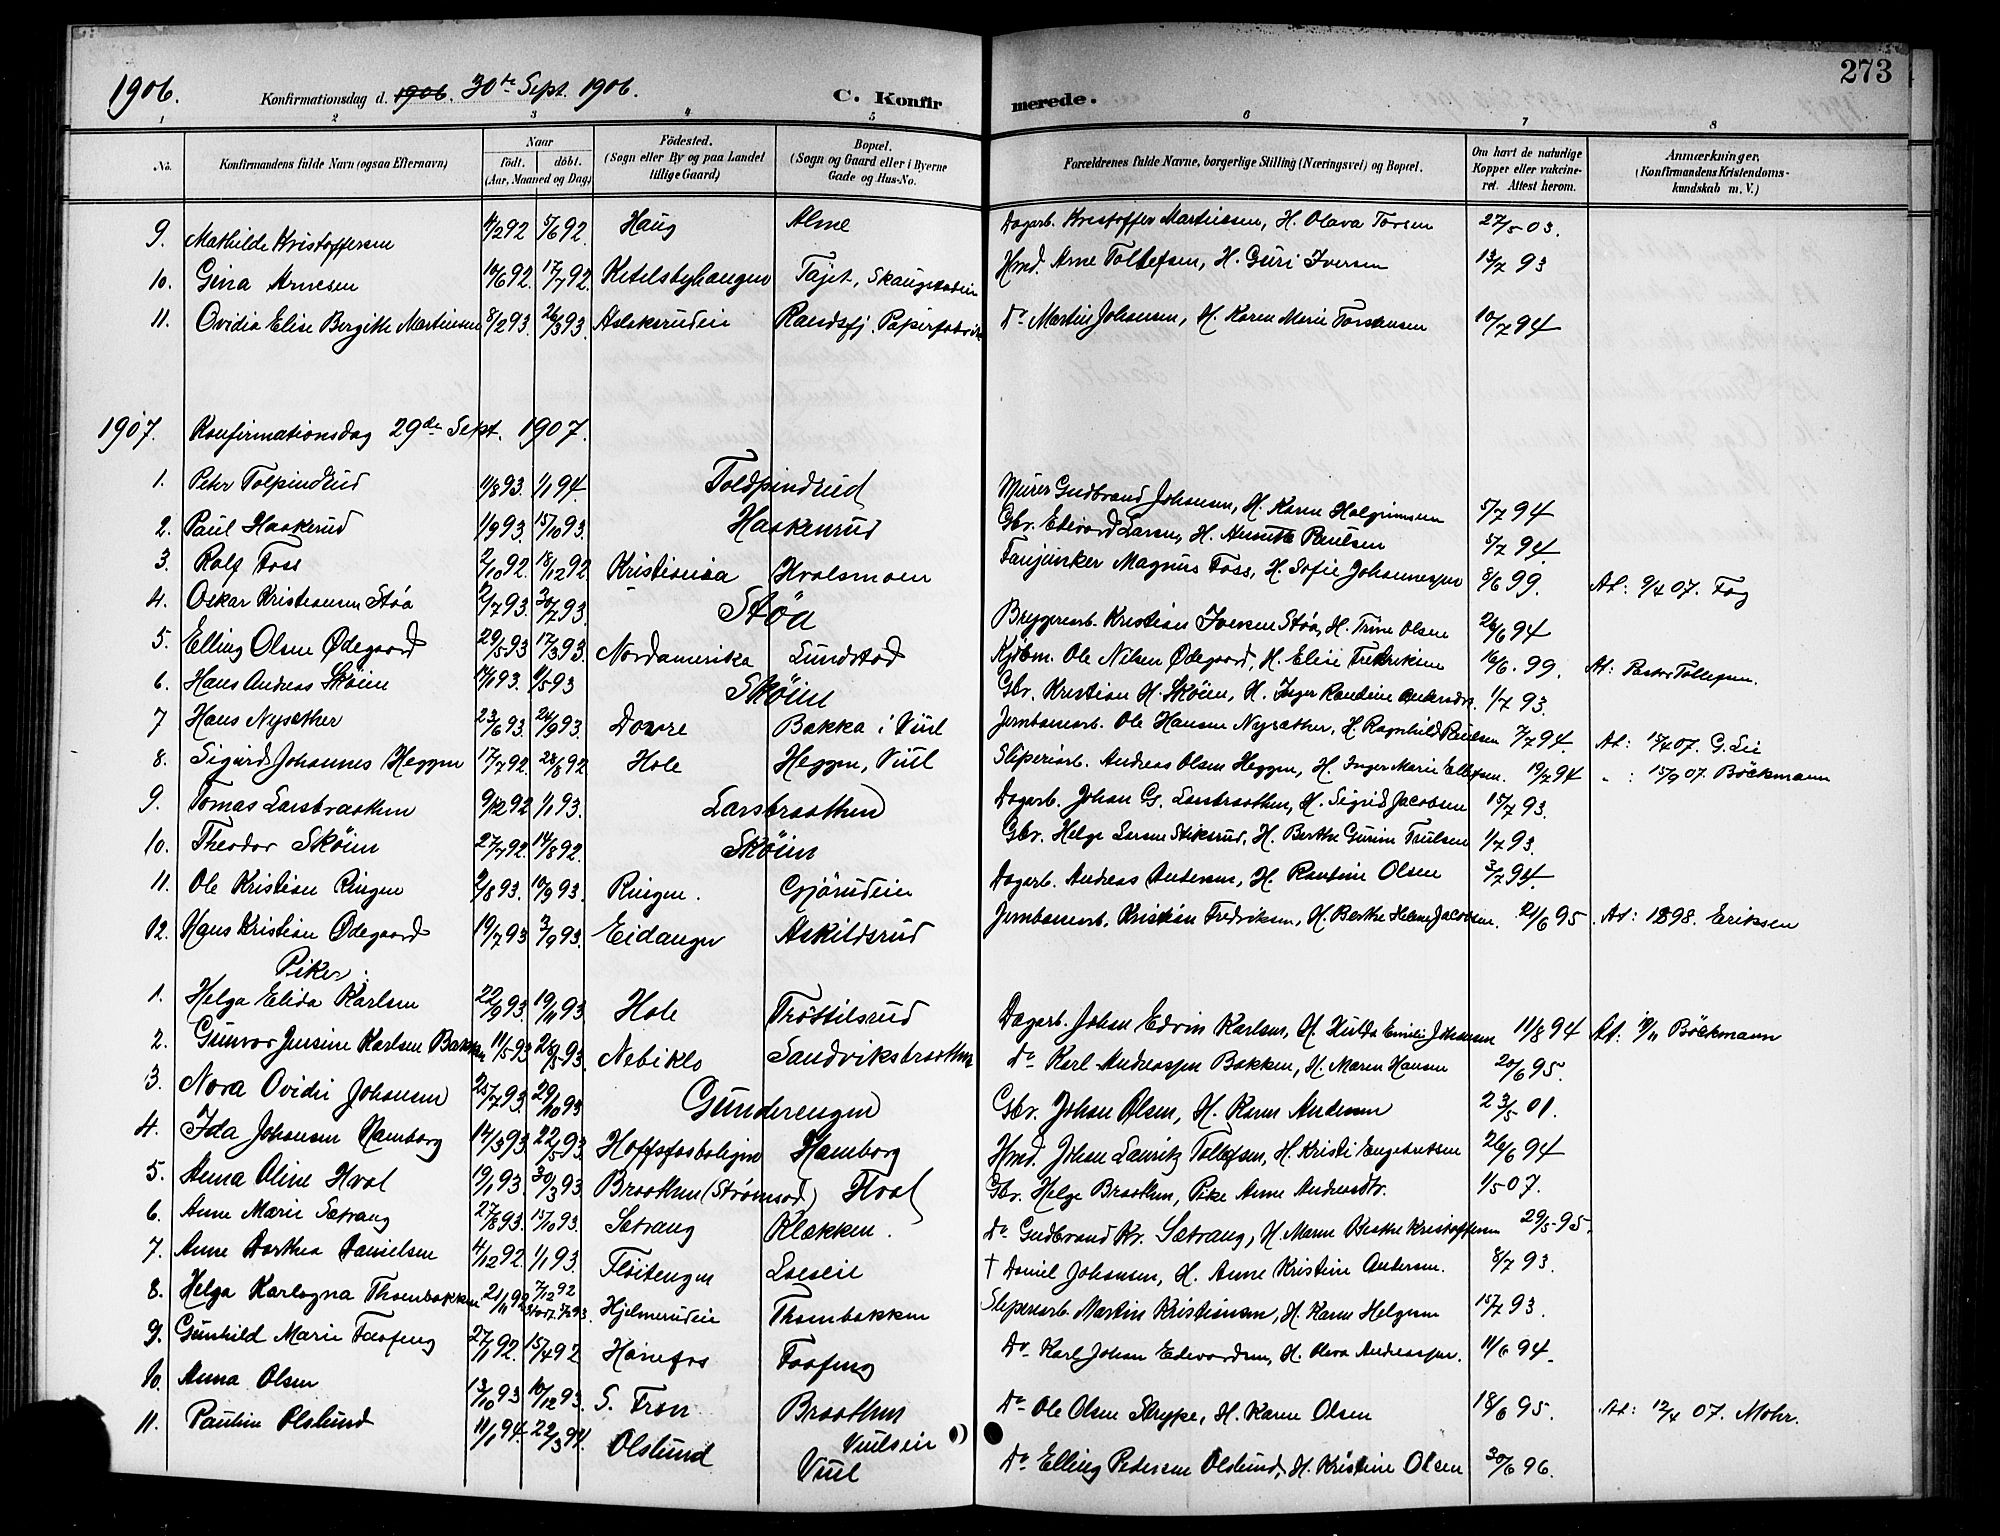 273
1906. Konfirmationsdag d. 1906. 30te Sept. 1906. C. Konfirmerede.
1 2 3 4 5 6 7 8
No. Konfirmandens fulde Navn (ogsaa Efternavn) Naar født. døbt. (Aar, Maaned og Dag) Fødested. (Sogn eller By og paa Landet tillige Gaard) Bopæl. (Sogn og Gaard eller i Byerne Gade og Hus-No. Forældrenes fulde Navne, borgerlige Stilling (Næringsvei) og Bopæl. Om havt de naturlige Kopper eller vakcineret. Attest herom. Anmærkninger, (Konfirmandens Kristendomskundskab m. V.)
9. Mathilde Kristoffersen 4/2 92 5/6 92. Haug Alme Dagarb. Kristoffer Martinssen, H. Olava Torsen 27/5 03.
10. Gina Arnesen 10/6 92. 17/7 92. Ketelsbyhaugen Tajet, Skaugstadeie Hmd. Arne Tollefsen, H. Guri Iversen 13/7 93
11. Ovidia Elise Bergithe Martinsen 8/2 93. 26/3 93. Aslaksrudeie Randsfj. Papirfabrik Do Martin Johansen, H. Karen Marie Torstensen 10/7 94
1907. Konfirmationsdag 29de Sept. 1907.
1. Peter Tolpindrud 11/8 93. 1/1 94 Toldpindrud Murer Gudbrand Johansen, H. Karen Halgrimsen 5/7 94
2. Paul Haakerud 1/9 93. 15/10 93. Haakenrud Gbr. Edvard Larsen, H. Annette Paulsen 5/7 94.
3. Rolf Foss 2/10 92. 18/12 92 Kristiania Hvalsmoen Fanjunker Magnus Foss, H. Sofie Johannessen 8/6 99. At: 9/4 07. Fog
4. Oskar Kristiansen Støa 2/7 93. 30/7 93. Støa Bryggeriarb. Kristian Iversen Støa, H. Trine Olsen 26/6 94
5. Elling Olsen Ødegaard 29/5 93 17/3 93. Nordamerika Lundstad Kjøbm. Ole Nilsen Ødegaard, H. Elise Fredriksen 16/6. 99. At: Pastor Tollefsen.
6. Hans Andreas Skøien 14/1 93. 1/5 93 Skøien Gbr. Kristian H. Skøien, H. Inger Randine Andersdtr. 1/7 93.
7 Hans Nysæther 23/6 93. 24/9 93. Dovre Bakka i Viul Jernbanearb. Ole Hansen Nysæther, H. Ragnhild Paulsen 7/7 94 At: 15/4 07. G. Lie
8. Sigurd Johannes Heggen 17/7 92. 28/8 92 Hole Heggen, Viul Sliperiarb. Andreas Olsen Heggen, H. Inger Marie Ellefsen. 19/7 94 " : 15/9 07. Böckmann
9. Tomas Larsbraathen 9/12 92 1/1 93. Larsbraathen Dagarb. Johan G. Larsbraathen, H. Sigrid Jacobsen 15/7 93.
10. Theodor Skøien 27/7 92. 14/8 92. Skøien Gbr. Helge Larsen Stiksrud, H. Berthe Gurine Trulsen 1/7 93.
11. Ole Kristian Ringen 9/8 93. 10/9 93. Ringen. Gjørudeie Dagarb. Andreas Andersen, H. Randine Olsen 3/7 94.
12. Hans Kristian Ødegaard 19/7 93 3/9 93. Eidanger Askildsrud Jernbanearb. Kristian Fredriksen, H. Berthe Helene Jacobsen. 21/6 95 At: 1898. Eriksen
Piker.
1. Helga Elida Karlsen 22/9 93. 19/11 93. Hole Trøttilsrud Dagarb. Johan Edvin Karlsen, H. Hulda Emilie Johansen 11/8 94 At: 10/11 Böckmann
2. Gunvor Jensine Karlsen Bakken 11/5 93 28/5 93. Nebiklo Sandviksbraathen Do Karl Andreassen Bakken, H. Maren Hansen 20/6 95.
3. Nora Ovidie Johansen 25/7 93. 29/10 93 Gunderengen Gbr. Johan Olsen, H. Karen Andersen 23/5 01.
4. Ida Johansen Hamborg 14/3 93 22/5 93. Hoffsfosboligen Hamborg Hmd. Johan Lauritz Tollefsen, H. Kristi Engebretsen 26/6 94
5. Anna Oline Hval 19/1 93. 30/3 93 Braathen (Strømsod) Hval Gbr. Helge Braathen, Pike Anne Andersdtr. 1/5 07.
6. Anne Marie Sætrang 27/8 93. 15/10 93. Sætrang Klækken. Do Gudbrand Kr. Sætrang, H. Maren Berthe Kristoffersen 29/5 95.
7. Anne Dorthea Danielsen 4/12 92. 1/1 93. Fløitengen Loeseie † Daniel Johansen, H. Anne Kristine Andersen. 8/7 93.
8. Helga Karlogna Thombakken 21/11 92 7/12 92 Hjelmerudeie Thombakken Sliperiarb. Martin Kristiansen, H. Karen Helgesen 15/7 93.
9. Gunhild Marie Faafeng 27/1 92. 15/4 92 Hønefos Faafeng Do Karl Johan Edvardsen, H. Oleva Andreassen. 11/6 94.
10. Anna Olsen 13/10 93 10/12 93. S. Fron Braathen Viulseie Do Ole Olsen Skrype, H. Karen Olsen 18/6 95. At: 12/4 07. Mohr.
11. Pauline Olslund 11/1 94. 22/3 94. Olslund Viul Do Elling Pedersen Olslund, H. Kristine Olsen 30/6 96.